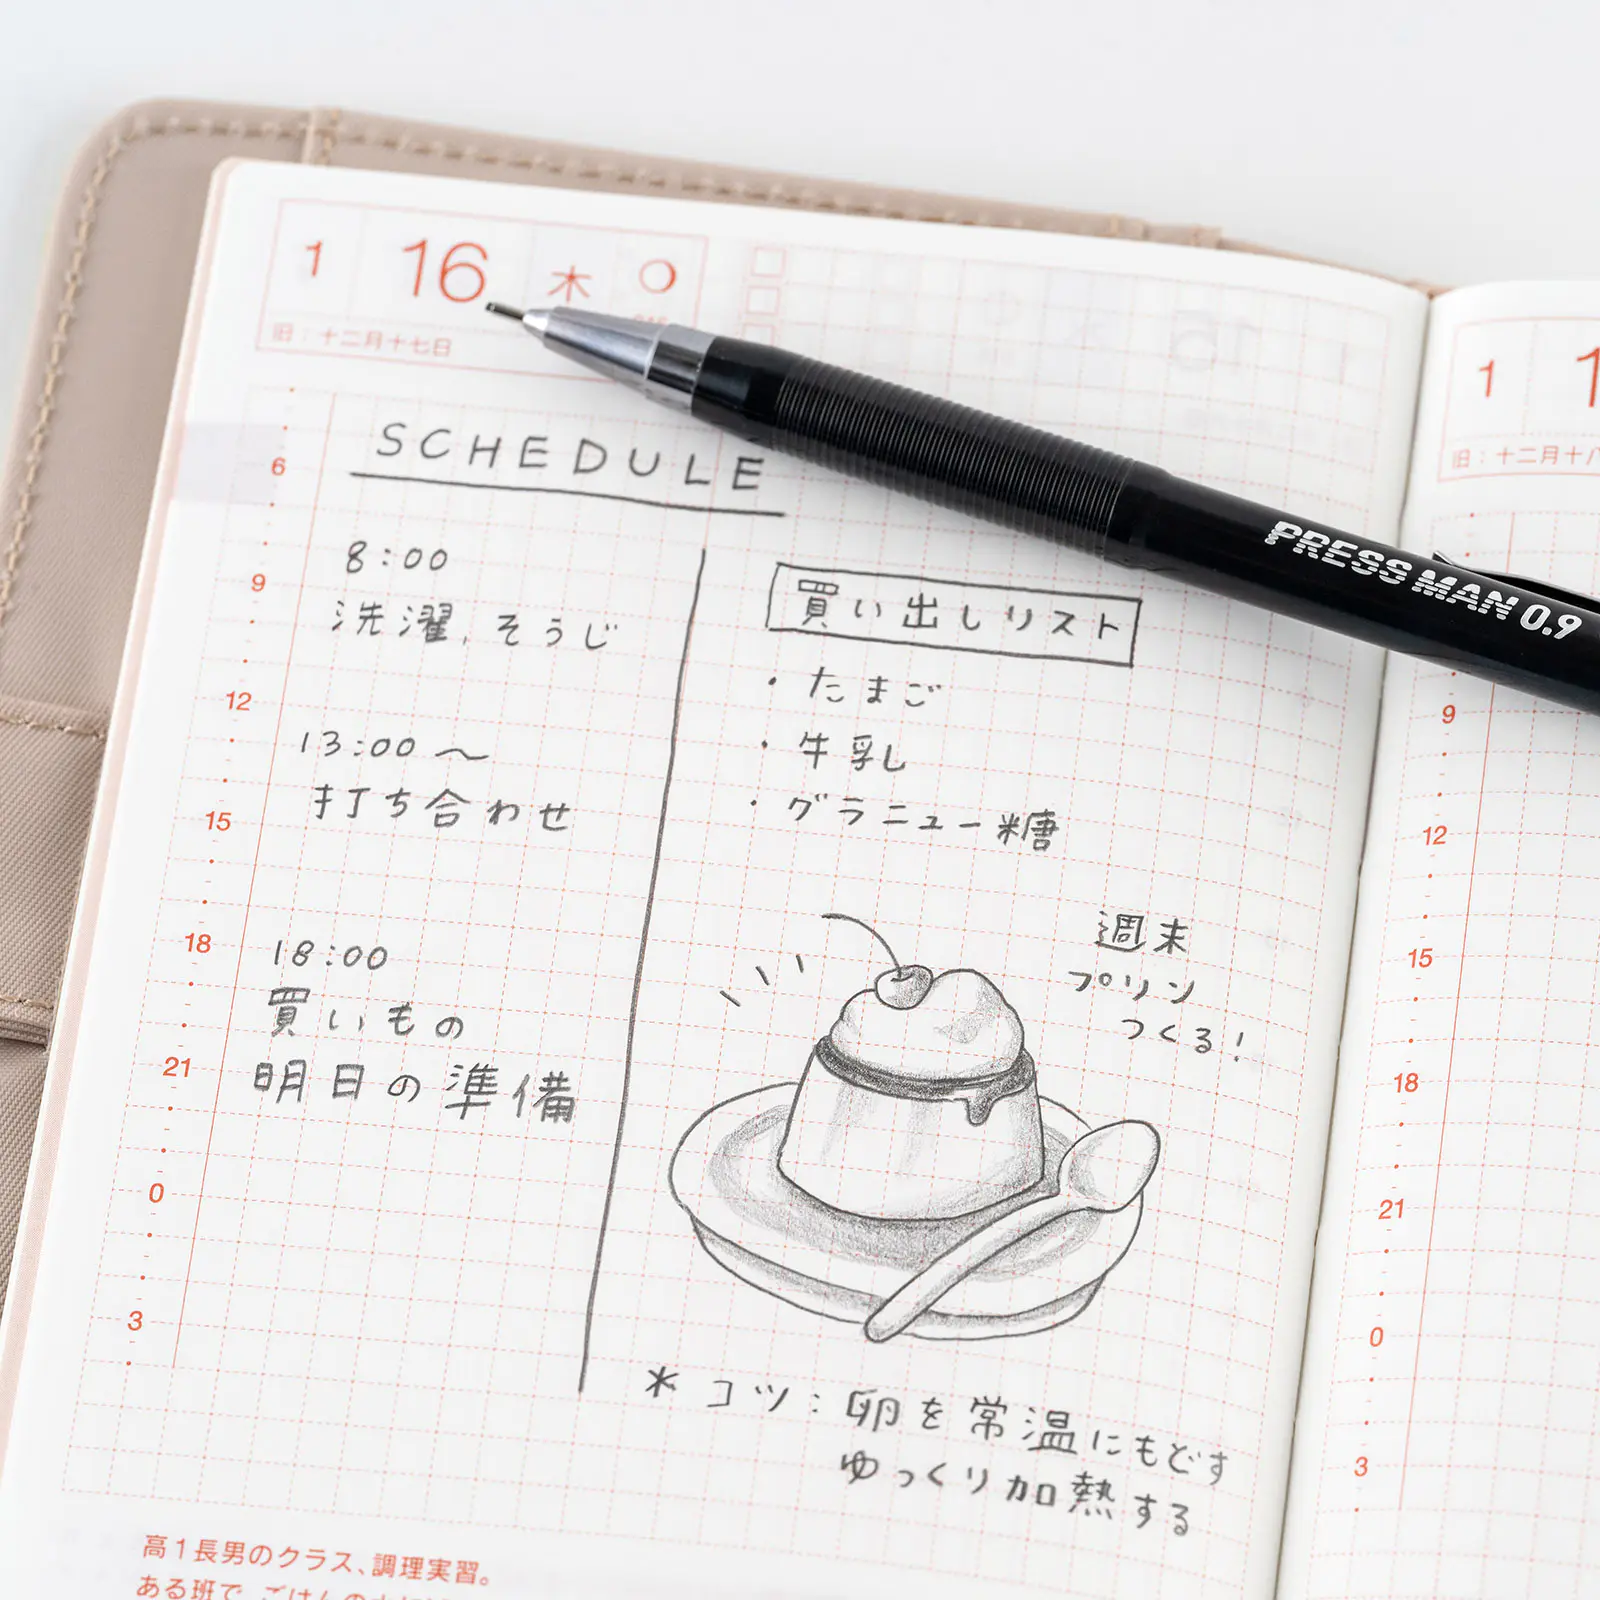 1 16 木
旧：十二月十七日
SCHEDULE
6
9
12
15
18
21
0
3
8:00
洗濯、そうじ
13:00〜
打ち合わせ
18:00
買いもの
明日の準備
買い出しリスト
・たまご
・牛乳
・グラニュー糖
週末
プリン
つくる！
＊コツ：卵を常温にもどす
ゆっくり加熱する
高1長男のクラス、調理実習。
ある班で、ごはんの
PRESS MAN 0.9
1 1
旧：十二月十八
9
12
15
18
21
0
3